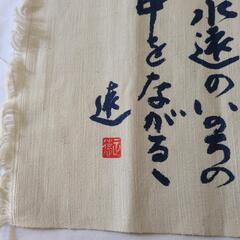 水遠のいのちの
中をながるゝ
遠